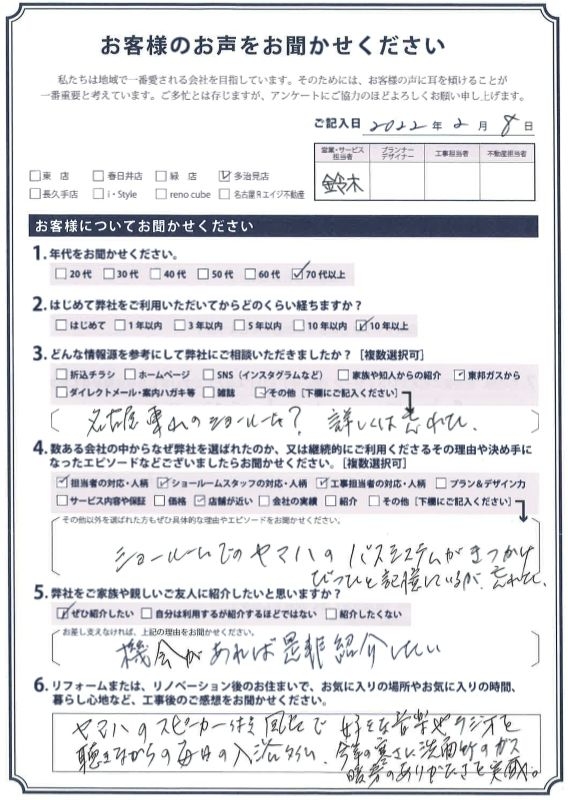 お客様のお声をお聞かせください
私たちは地域で一番愛される会社を目指しています。そのためには、お客様の声に耳を傾けることが
一番重要と考えています。ご多忙とは存じますが、アンケートにご協力のほどよろしくお願い申し上げます。
ご記入日 2022年 2月 8日
営業・サービス担当者 プランナーデザイナー 工事担当者 不動産担当者
鈴木
□東 店 □春日井店 □緑 店 ☑多治見店
□長久手店 □i・Style □reno cube □名古屋Rエイジ不動産
お客様についてお聞かせください
1. 年代をお聞かせください。
□20代 □30代 □40代 □50代 □60代 ☑70代以上
2. はじめて弊社をご利用いただいてからどのくらい経ちますか?
□はじめて □1年以内 □3年以内 □5年以内 □10年以内 ☑10年以上
3. どんな情報源を参考にして弊社にご相談いただきましたか?[複数選択可]
□折込チラシ □ホームページ □SNS(インスタグラムなど) □家族や知人からの紹介 ☑東邦ガスから
□ダイレクトメール・案内ハガキ等 □雑誌 ☑その他[下欄にご記入ください]
名古屋 のショールーム? 詳しくは忘れた。
4. 数ある会社の中からなぜ弊社を選ばれたのか、又は継続的にご利用くださるその理由や決め手に
なったエピソードなどございましたらお聞かせください。[複数選択可]
☑担当者の対応・人柄 ☑ショールームスタッフの対応・人柄 ☑工事担当者の対応・人柄 □プラン&デザイン力
□サービス内容や保証 □価格 ☑店舗が近い □会社の実績 □紹介 □その他[下欄にご記入ください]
その他以外を選ばれた方もぜひ具体的な理由やエピソードをお聞かせください。
ショールームでのヤマハのバスシステムがきっかけ
と記憶しているが、忘れた、
5. 弊社をご家族や親しいご友人に紹介したいと思いますか?
☑ぜひ紹介したい □自分は利用するが紹介するほどではない □紹介したくない
お差し支えなければ、上記の理由をお聞かせください。
機会があれば是非紹介したい
6. リフォームまたは、リノベーション後のお住まいで、お気に入りの場所やお気に入りの時間、
暮らし心地など、工事後のご感想をお聞かせください。
ヤマハのスピーカー付き風呂で 好きな音楽やラジオを
聴きながらの毎日の入浴タイム。今年の寒さに洗面所のガス
暖房のありがたさを実感。